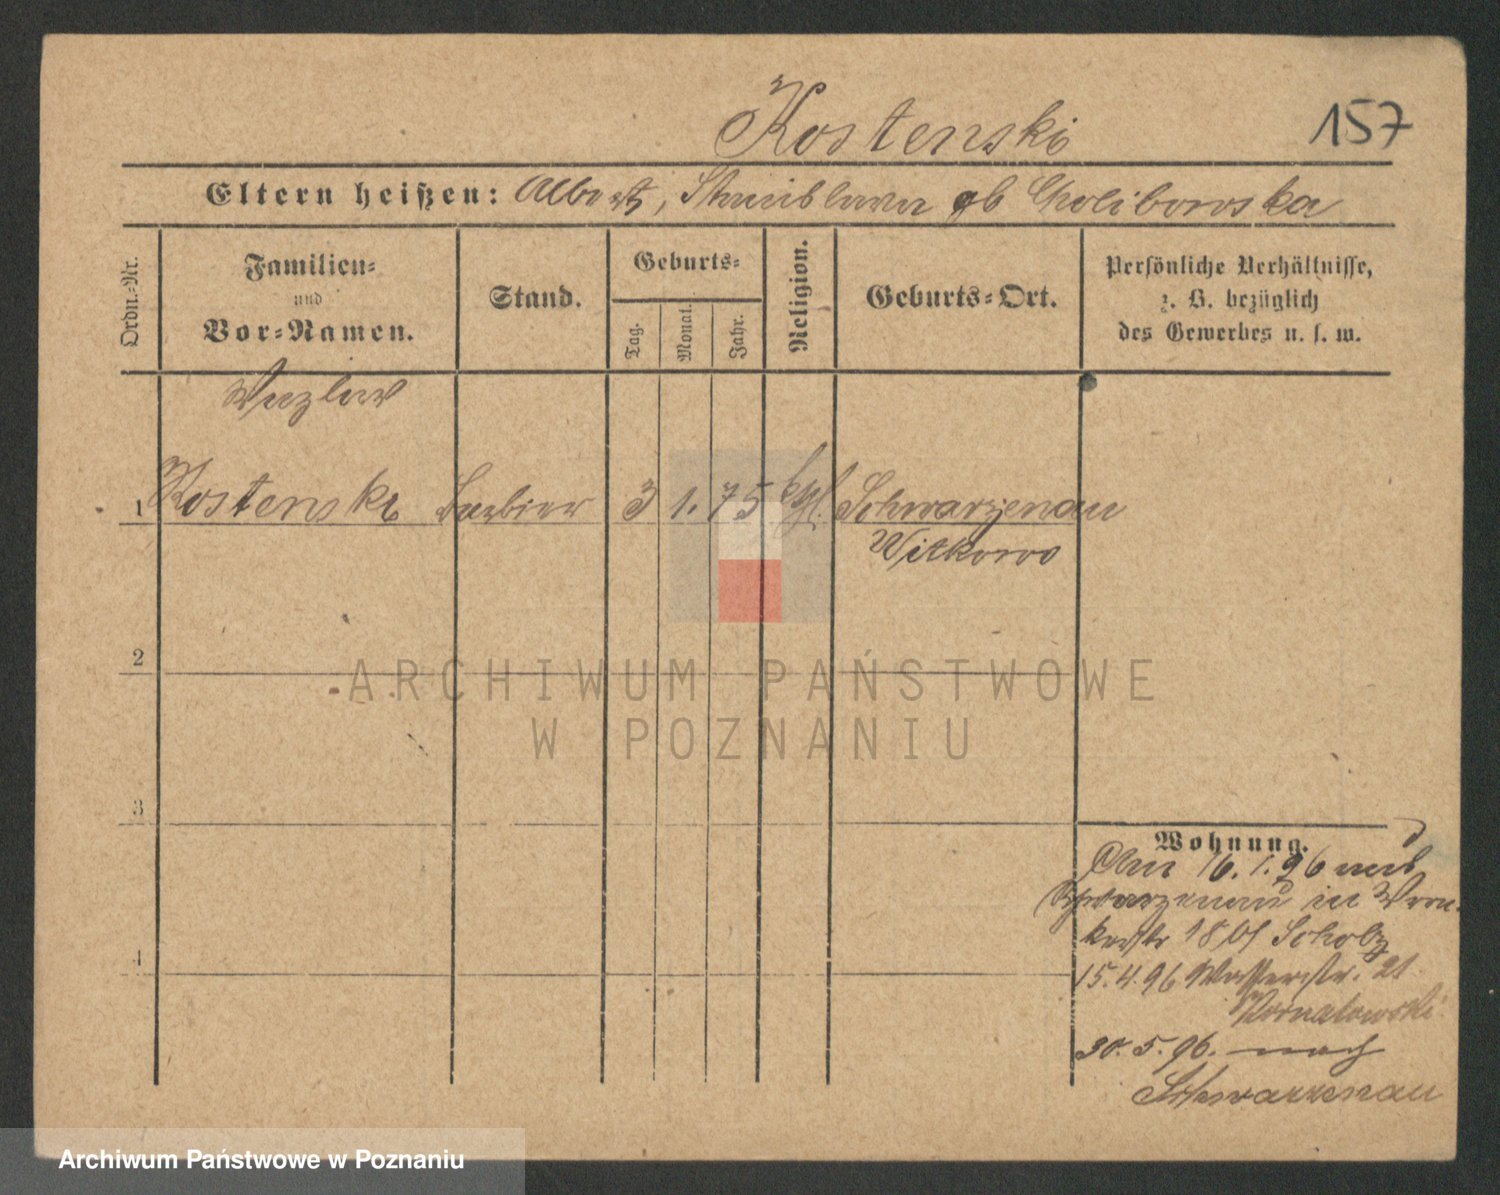 Kostenski
157
Eltern heißen: Albert, Stanislawa gb Choliboroska
Ordn.-Nr.
Familien-
und
Vor-Namen.
Stand.
Geburts-
Tag.
Monat.
Jahr.
Religion.
Geburts-Ort.
Persönliche Verhältnisse,
z. B. bezüglich
des Gewerbes u. s. w.
Wazlaw
1 Kostenski Barbier 3 1. 75 kth. Schwarzenau
Witkowo
2
3
4
Wohnung.
Am 16.1.96 aus
Schwarzenau in
18 bei Scholz
15.4.96 Wasserstr. 21
Kornalowski
30.5.96. nach
Schwarzenau
ARCHIWUM PAŃSTWOWE
W POZNANIU
Archiwum Państwowe w Poznaniu